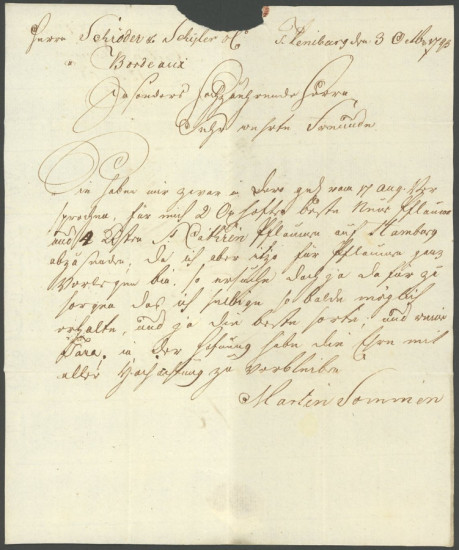 Herrn Schröder & Schÿler & Co Flensburg den 3 Octbr 1793
a Bordeaux
Besonders Hochzuehrende Herrn
Sehr wehrte Freunde
Sie haben mir zwar in Dero vom 17 Aug. Ver
sprochen, für mich 2 beste Neue Pflaumen
und 4 Kisten St Cathrin Pflaumen auf Hamburg
abzusenden, Da ich aber itzo für Pflaumen ganz
Verlegen bin, so ersuche doch ja da für zu
sorgen das ich selbige so balde möglich
erhalte, und ja die beste sorte, und
Tara, in der Hofnung habe die Ehre mit
aller Hochachtung zu verbleiben
Martin